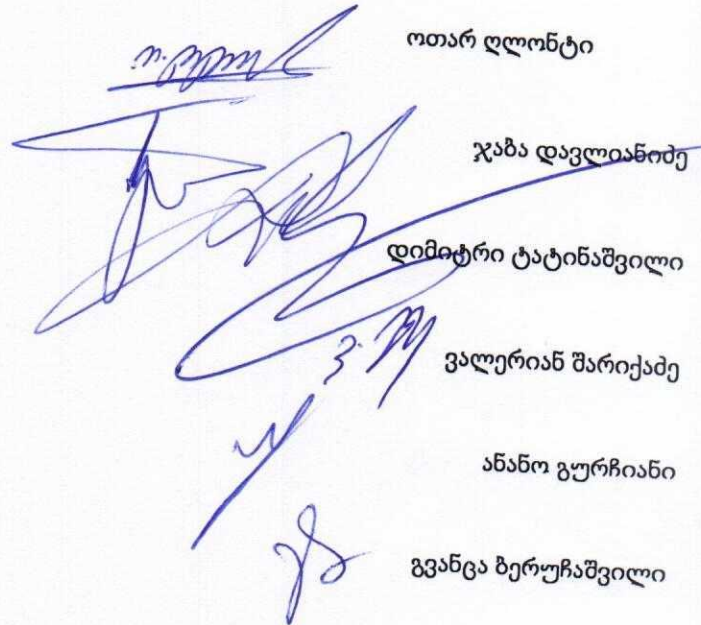 ოთარ ღლონტი
ჯაბა დავლიანიძე
დიმიტრი ტატინაშვილი
ვალერიან შარიქაძე
ანანო გურჩიანი
გვანცა ბერუჩაშვილი